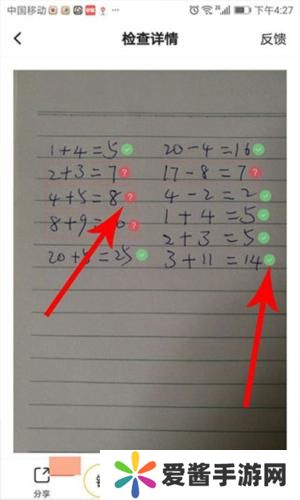 中国移动 下午4:27
检查详情 反馈
1+4=5 20-4=16
2+3=7 17-8=7
4+5=8 4-2=2
8+9= 1+4=5
2+3=5
20+5=25 3+11=14
分享
爱酱手游网
www.aijiangsy.com